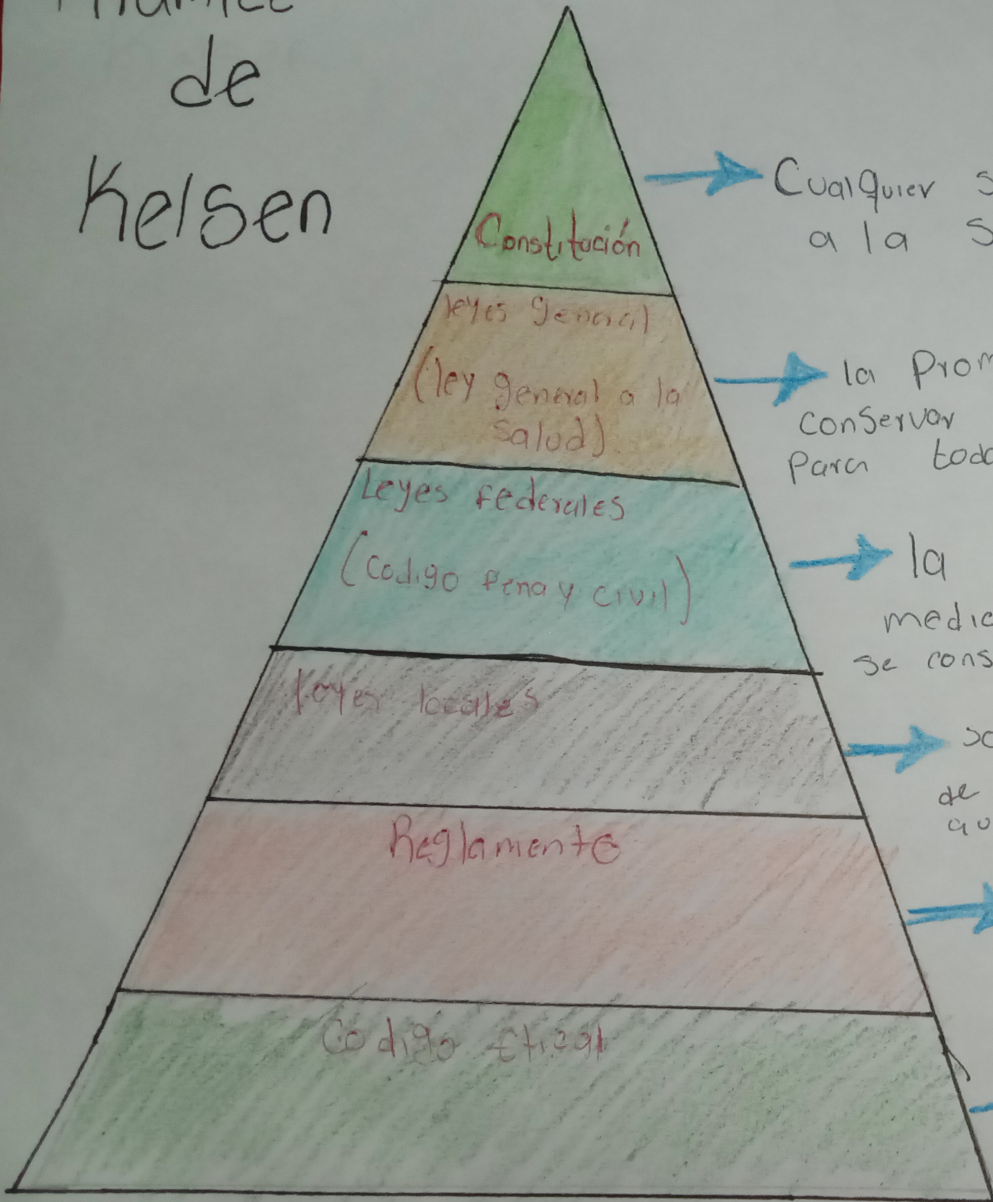 de
Kelsen
Constitución
leyes general
(ley general a la
salud)
Leyes federales
(Codigo Pena y civil)
leyes locales
Reglamento
Codigo
Cualquier
a la
la
conservar
Para
la
se
de